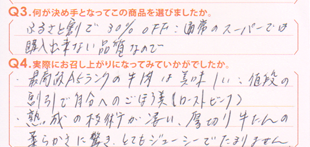 Q3.何が決め手となってこの商品を選びましたか。
ふるさと割で30%OFF: 通常のスーパーでは
購入出来ない品質なので
Q4.実際にお召し上がりになってみていかがでしたか。
・最高級A5ランクの牛肉は美味しい: 値段の
割引で自分へのごほう美(ローストビーフ)
・熟成の技術が凄い、厚切り牛たんの
柔らかさに驚き、とてもジューシーでたまりません